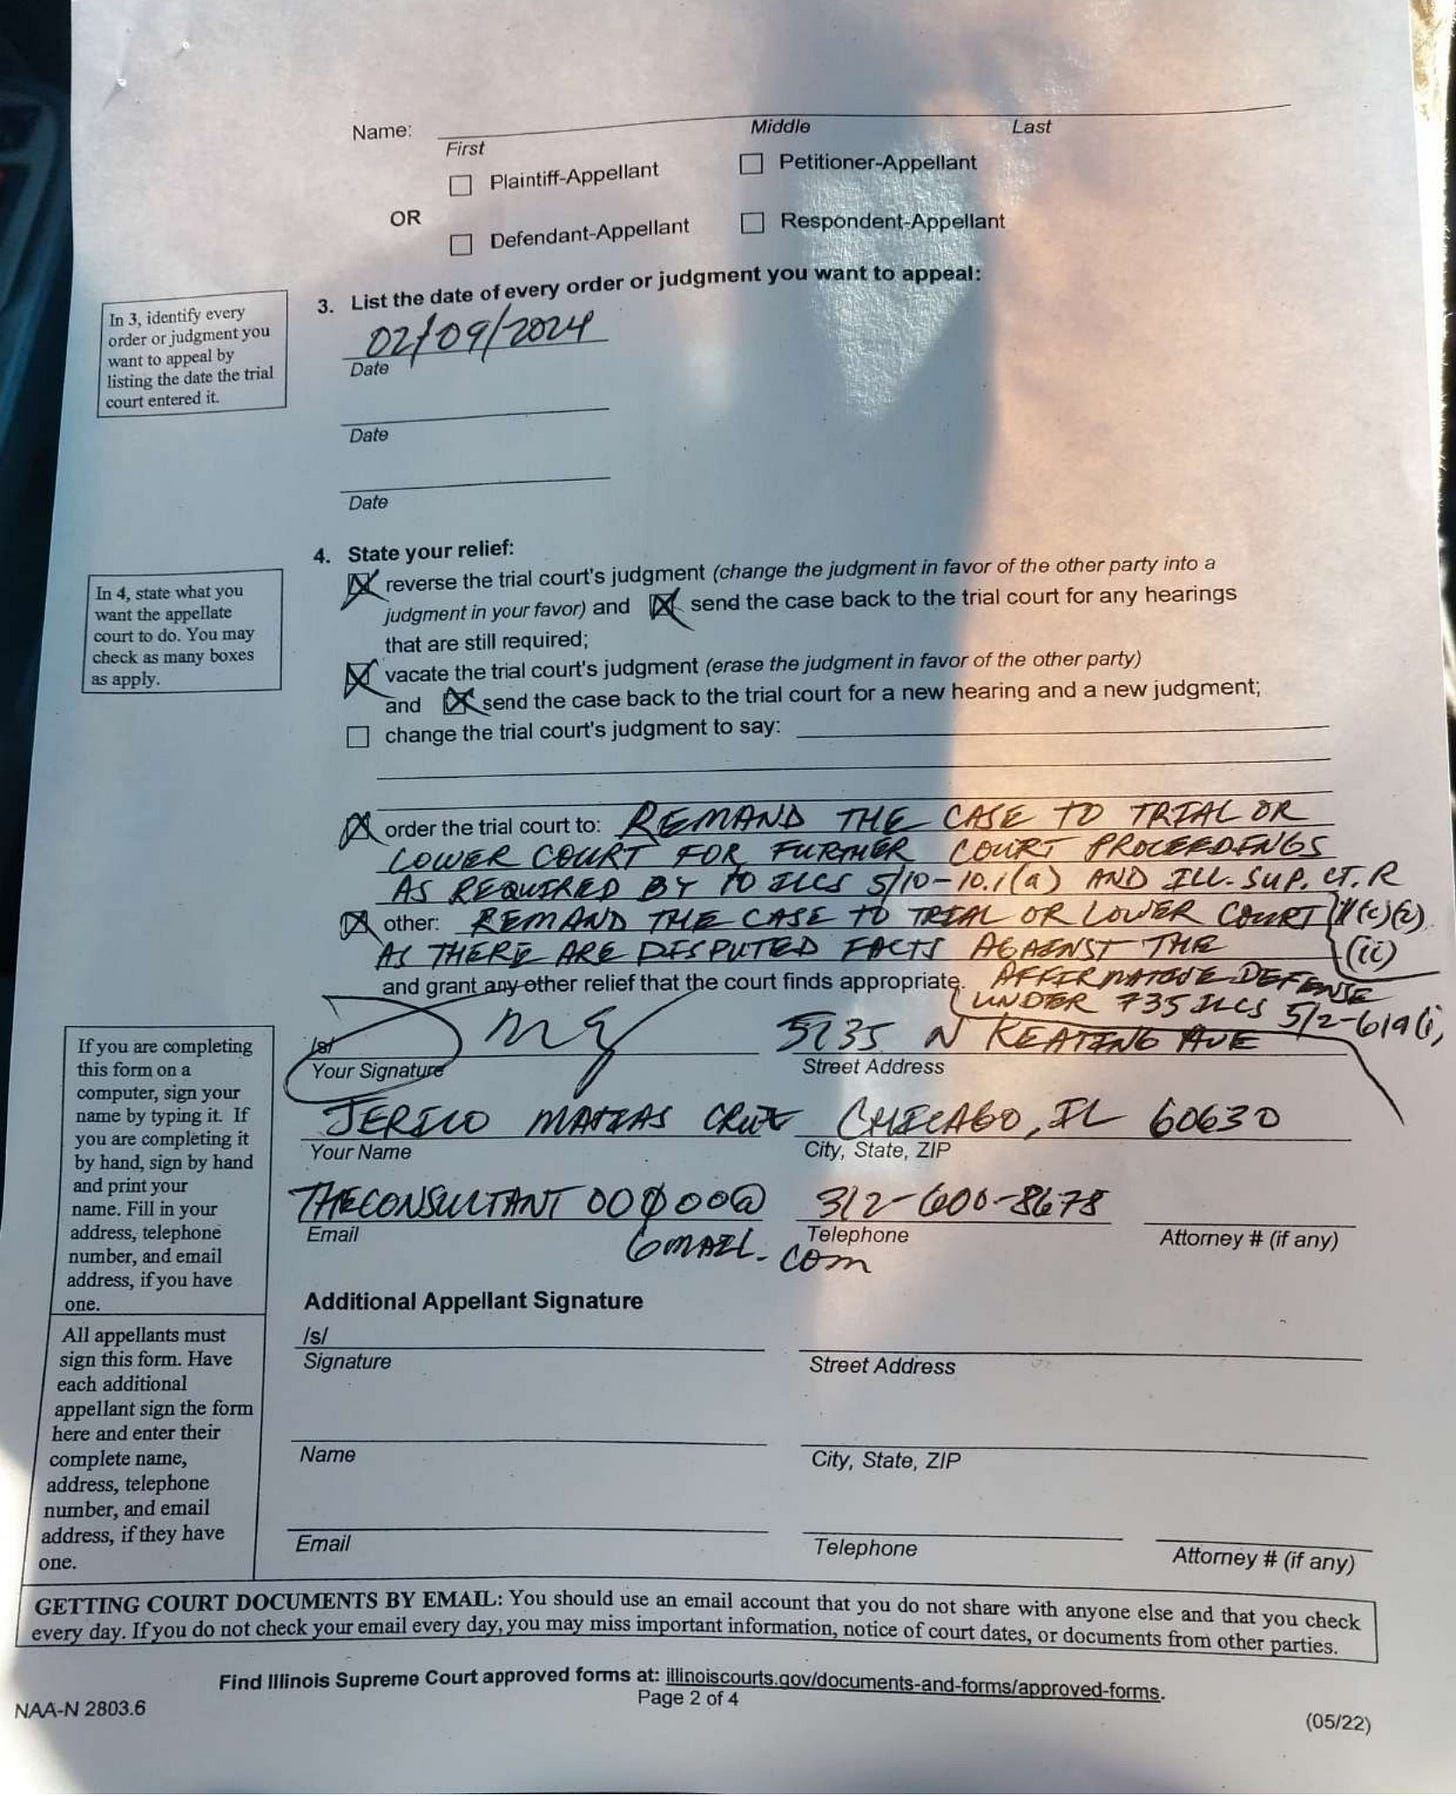 Name:
First
Middle
Last
Plaintiff-Appellant
Petitioner-Appellant
OR
Defendant-Appellant
Respondent-Appellant
In 3, identify every
order or judgment you
want to appeal by
listing the date the trial
court entered it.
3. List the date of every order or judgment you want to appeal:
02/09/2024
Date
Date
Date
In 4, state what you
want the appellate
court to do. You may
check as many boxes
as apply.
4. State your relief:
reverse the trial court's judgment (change the judgment in favor of the other party into a
judgment in your favor) and send the case back to the trial court for any hearings
that are still required;
vacate the trial court's judgment (erase the judgment in favor of the other party)
and send the case back to the trial court for a new hearing and a new judgment;
change the trial court's judgment to say:
order the trial court to: REMAND THE CASE TO TRIAL OR
LOWER COURT FOR FURTHER COURT PROCEEDINGS
AS REQUIRED BY 10 ILCS 5/10-10.1(a) AND ILL. SUP. CT. R
other: REMAND THE CASE TO TRIAL OR LOWER COURT
(ii)
AS THERE ARE DISPUTED FACTS AGAINST THE
and grant any other relief that the court finds appropriate. AFFIRMATIVE DEFENSE
UNDER 735 ILCS 5/2-619(i)
If you are completing
this form on a
computer, sign your
name by typing it. If
you are completing it
by hand, sign by hand
and print your
name. Fill in your
address, telephone
number, and email
address, if you have
one.
/s/
Your Signature
5135 N KEATING AVE
Street Address
JERICO MATIAS CRUZ
Your Name
CHICAGO, IL 60630
City, State, ZIP
THECONSULTANT00000@
GMAIL.COM
Email
312-600-8678
Telephone
Attorney # (if any)
All appellants must
sign this form. Have
each additional
appellant sign the form
here and enter their
complete name,
address, telephone
number, and email
address, if they have
one.
Additional Appellant Signature
/s/
Signature
Street Address
Name
City, State, ZIP
Email
Telephone
Attorney # (if any)
GETTING COURT DOCUMENTS BY EMAIL: You should use an email account that you do not share with anyone else and that you check
every day. If you do not check your email every day, you may miss important information, notice of court dates, or documents from other parties.
Find Illinois Supreme Court approved forms at: illinoiscourts.gov/documents-and-forms/approved-forms.
NAA-N 2803.6
Page 2 of 4
(05/22)